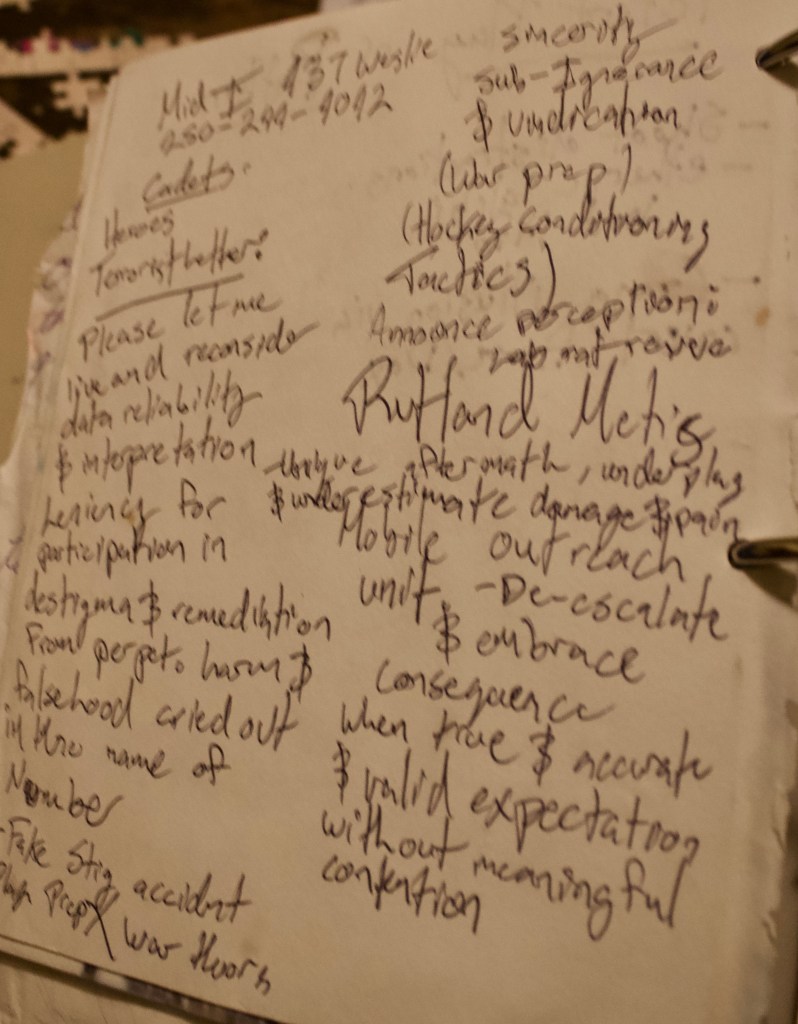 Mid I 437 Weslie
250-244-4042
Cadets.
Heroes
Terrorist better?
Please let me
live and reconsider
data reliability
$ interpretation
Leniency for
participation in
destigma $ remediation
From perpet. harm $
falsehood cried out
in the name of
Number
-Fake Stig accident
Prep War
sincerity
sub-Ignorance
$ vindication
(War prep)
(Hockey conditioning
Tactics)
Announce perception:
not
Rutland Metis
aftermath, underplay
$ underestimate damage $ pain
Mobile outreach
unit -De-escalate
$ embrace
consequence
when true $ accurate
$ valid expectation
without meaningful
contention